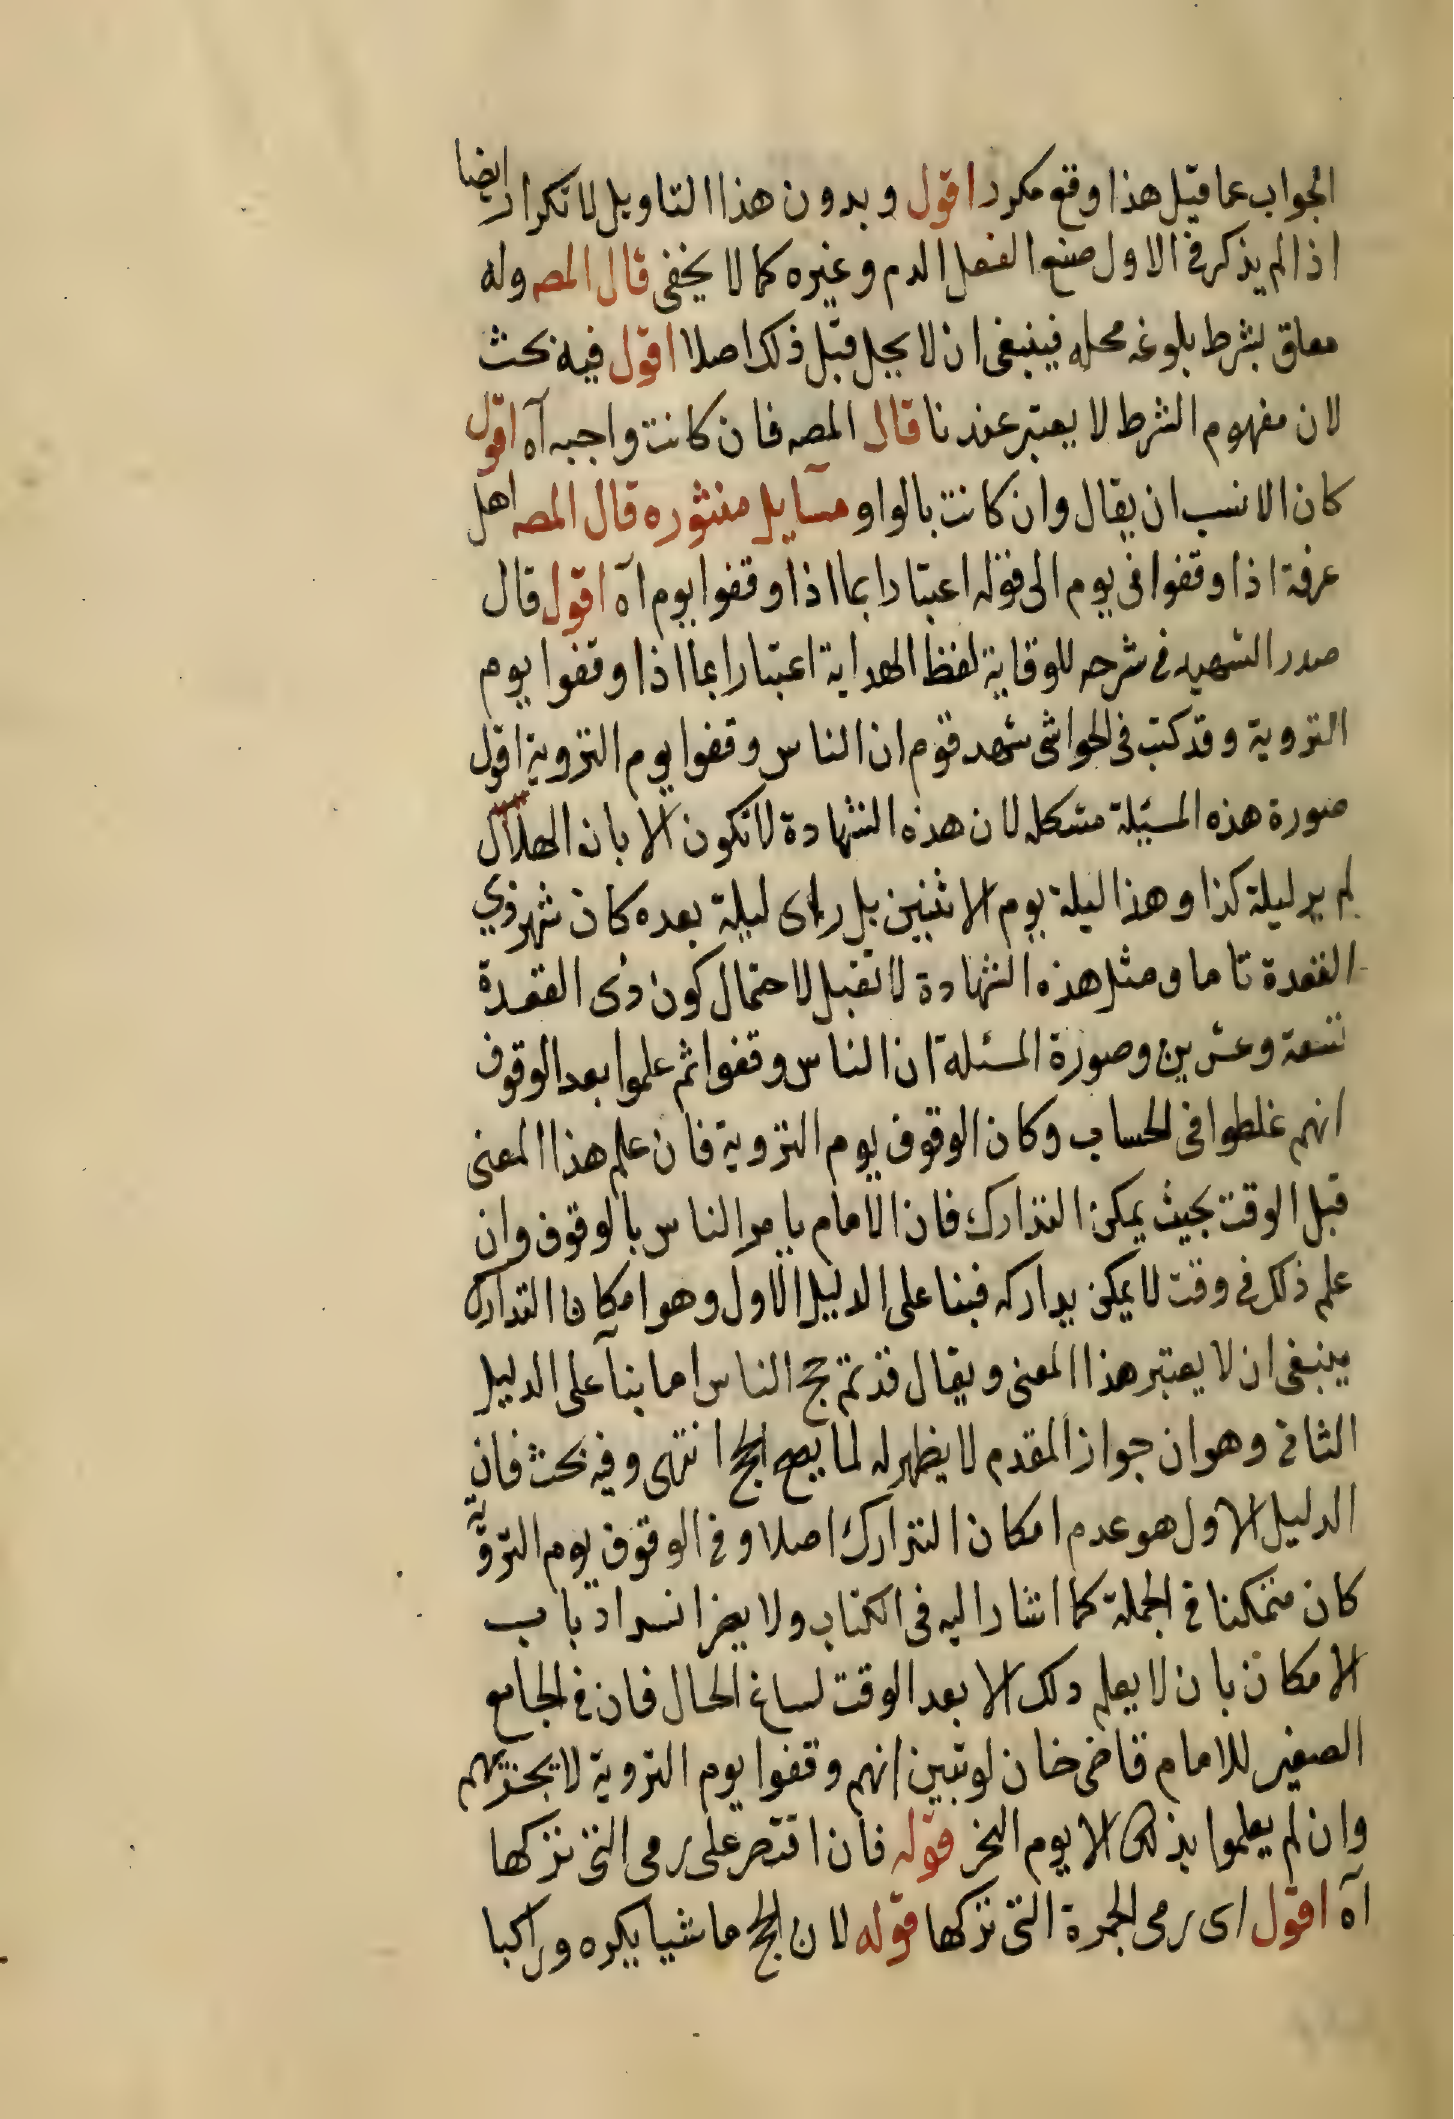 الجواب عما قيل هذا وقع مكرر اقول وبدون هذا التاويل لا تكرار ايضا
اذ لم يذكر في الاول صنع الفصل الدم وغيره كما لا يخفى قال المص وله
معلق بشرط بلوغه محله فينبغى ان لا يحل قبل ذلك اصلا اقول فيه بحث
لان مفهوم الشرط لا يعتبر عندنا قال المصه فان كانت واجبه آه اقول
كان الانسب ان يقال وان كانت بالواو مسايل منثوره قال المصه اهل
عرفة اذا وقفوا فى يوم الى قوله اعتبارا بما اذا وقفوا يوم آه اقول قال
صدر الشهيد فى شرحه للوقاية لفظ الهداية اعتبارا بما اذا وقفوا يوم
التروية وقد كتب فى الحواشى شهد قوم ان الناس وقفوا يوم التروية اقول
صورة هذه المسئلة مشكله لان هذه الشهادة لا تكون الا بان الهلال
لم ير ليلة كذا وهذا ليلة يوم الاثنين بل راى ليلة بعده كان شهر ذي
القعدة تاما ومثل هذه الشهادة لا تقبل لاحتمال كون ذى القعدة
تسعة وعشرين وصورة المسئلة ان الناس وقفوا ثم علموا بعد الوقوف
انهم غلطوا فى الحساب وكان الوقوف يوم التروية فان علم هذا المعنى
قبل الوقت بحيث يمكن التدارك فان الامام يامر الناس بالوقوف وان
علم ذلك فى وقت لا يمكن يداركه فبنا على الدليل الاول وهو امكان التدارك
ينبغى ان لا يعتبر هذا المعنى ويقال قد تم حج الناس اما بنآ على الدليل
الثانى وهو ان جواز المقدم لا يظهر له لما يصح الحج انتهى وفيه بحث فان
الدليل الاول هو عدم امكان التدارك اصلا وفى الوقوف يوم التروية
كان متمكنا فى الجملة كما اشار اليه فى الكتاب ولا يضر انسداد باب
الامكان بان لا يعلم دلك الا بعد الوقت لساغ الحال فان فى الجامع
الصغير للامام قاضى خان لو تبين انهم وقفوا يوم التروية لا يجزيهم
وان لم يعلموا بذلك الا يوم النحر قوله فان اقتصر على رمى التى تركها
آه اقول اى رمى الجمرة التى تركها قوله لان الحج ماشيا يكره وراكبا